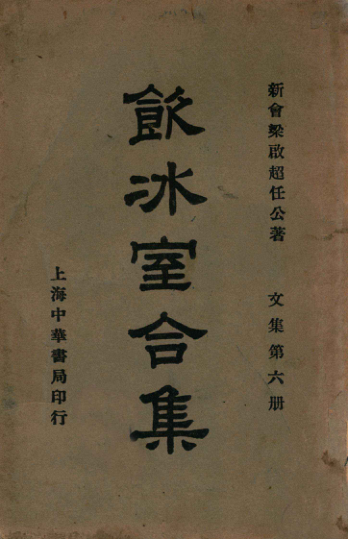 新會梁啟超任公著 文集第六册
飲冰室合集
上海中華書局印行